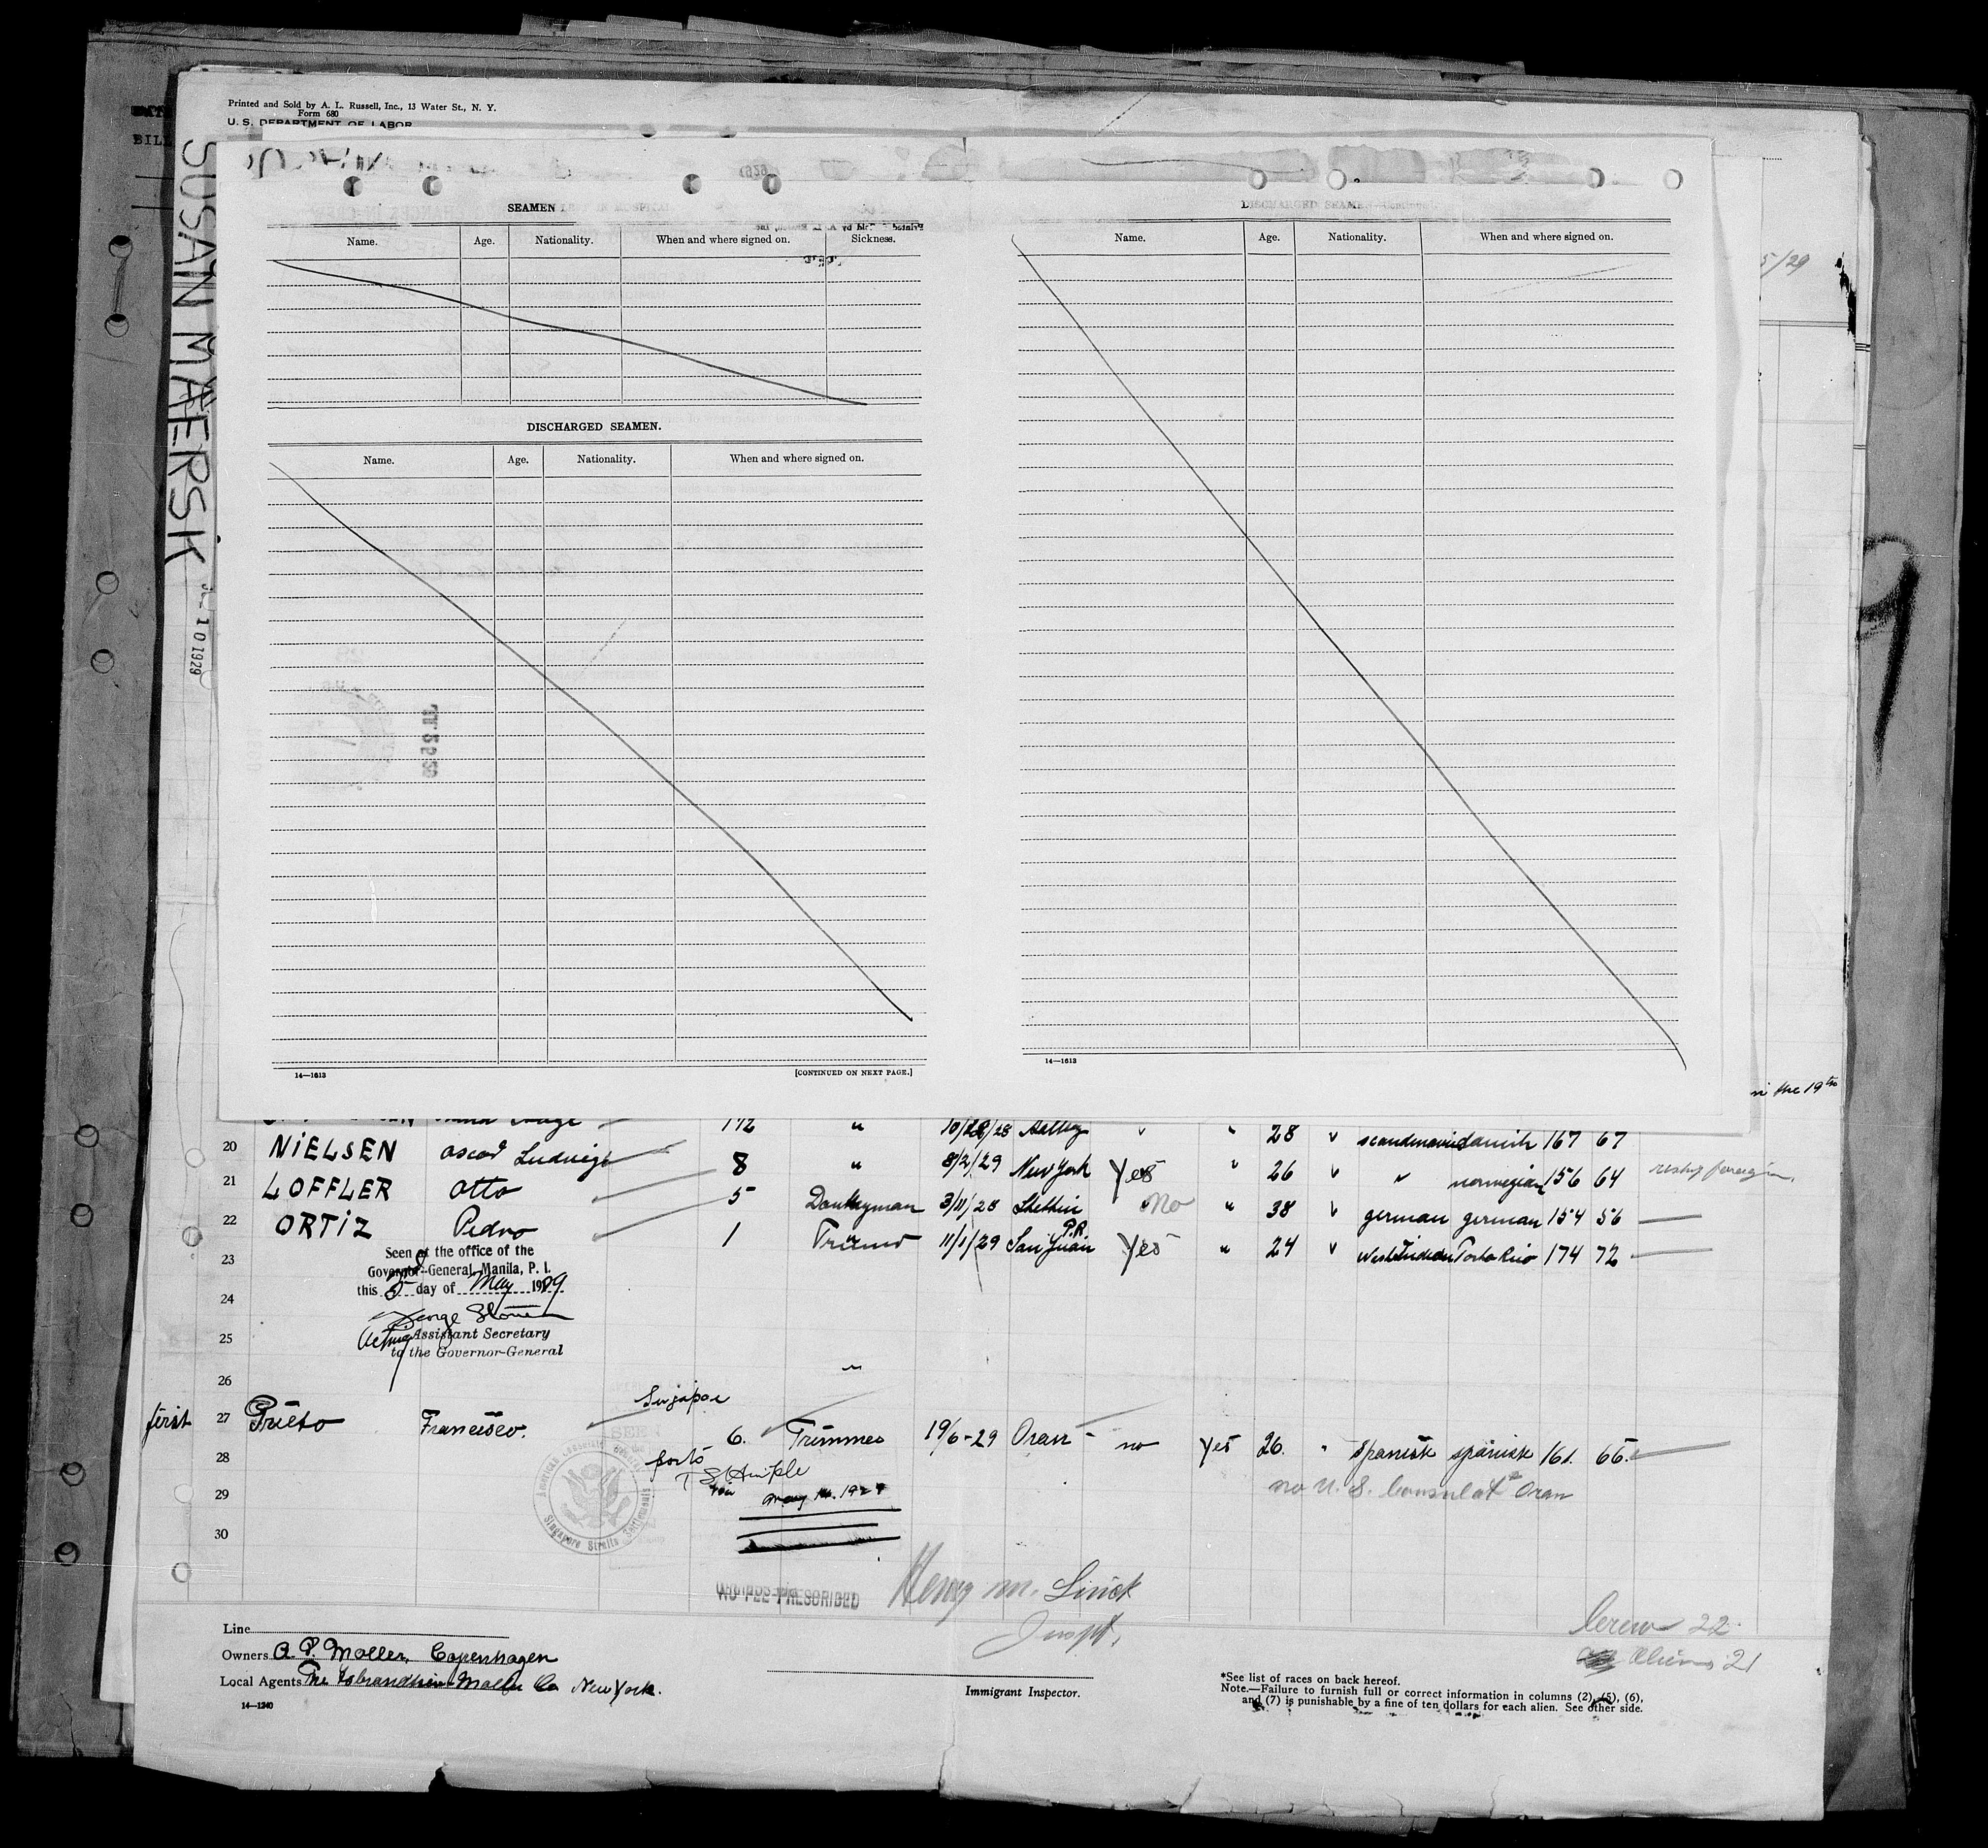 Printed and Sold by A. L. Russell, Inc., 13 Water St., N. Y.
Form 680
U. S. DEPARTMENT OF LABOR
BILL
SUSAN MÆRSK
10 1929
5/29
1929
SEAMEN
Name. Age. Nationality. When and where signed on. Sickness.
DISCHARGED SEAMEN.
Name. Age. Nationality. When and where signed on.
14—1613 [CONTINUED ON NEXT PAGE.]
DISCHARGED SEAMEN
Name. Age. Nationality. When and where signed on.
14—1613
the 19th
9
1 1/2 " 28 " danish 167 67
20 NiELSEN Ludwig 8 " 8/2/29 New York Yes " 26 " " norwegian 156 64
21 LOFFLER Otto 5 Donkeyman 3/11/28 Stettin No " 38 " german german 154 56
22 ORTiZ Pedro 1 Trimer 11/1/29 San Juan P.R. Yes " 24 " West Indian Porto Rico 174 72
23
24
25
26
Seen at the office of the
Governor-General, Manila, P. I.
this 2nd day of May 1929
George
Acting Assistant Secretary
to the Governor-General
Singapore
first 27 Prieto Francisco. 6. Trimmer 19/6-29 Oran - no yes 26. " Spanish spanish 161 66.
28 ports
no U. S. Consulate Oran
29 May 14. 1929
30
American Consulate General
Singapore Straits Settlements
NO FEE PRESCRIBED
Henry M. Linick
Inspt.
Crew 22
Aliens 21
Line
Owners A. P. Moller, Copenhagen
Local Agents The Isbrandtsen-Moller Co New York.
14—1240
Immigrant Inspector.
*See list of races on back hereof.
Note.—Failure to furnish full or correct information in columns (2), (5), (6),
and (7) is punishable by a fine of ten dollars for each alien. See other side.